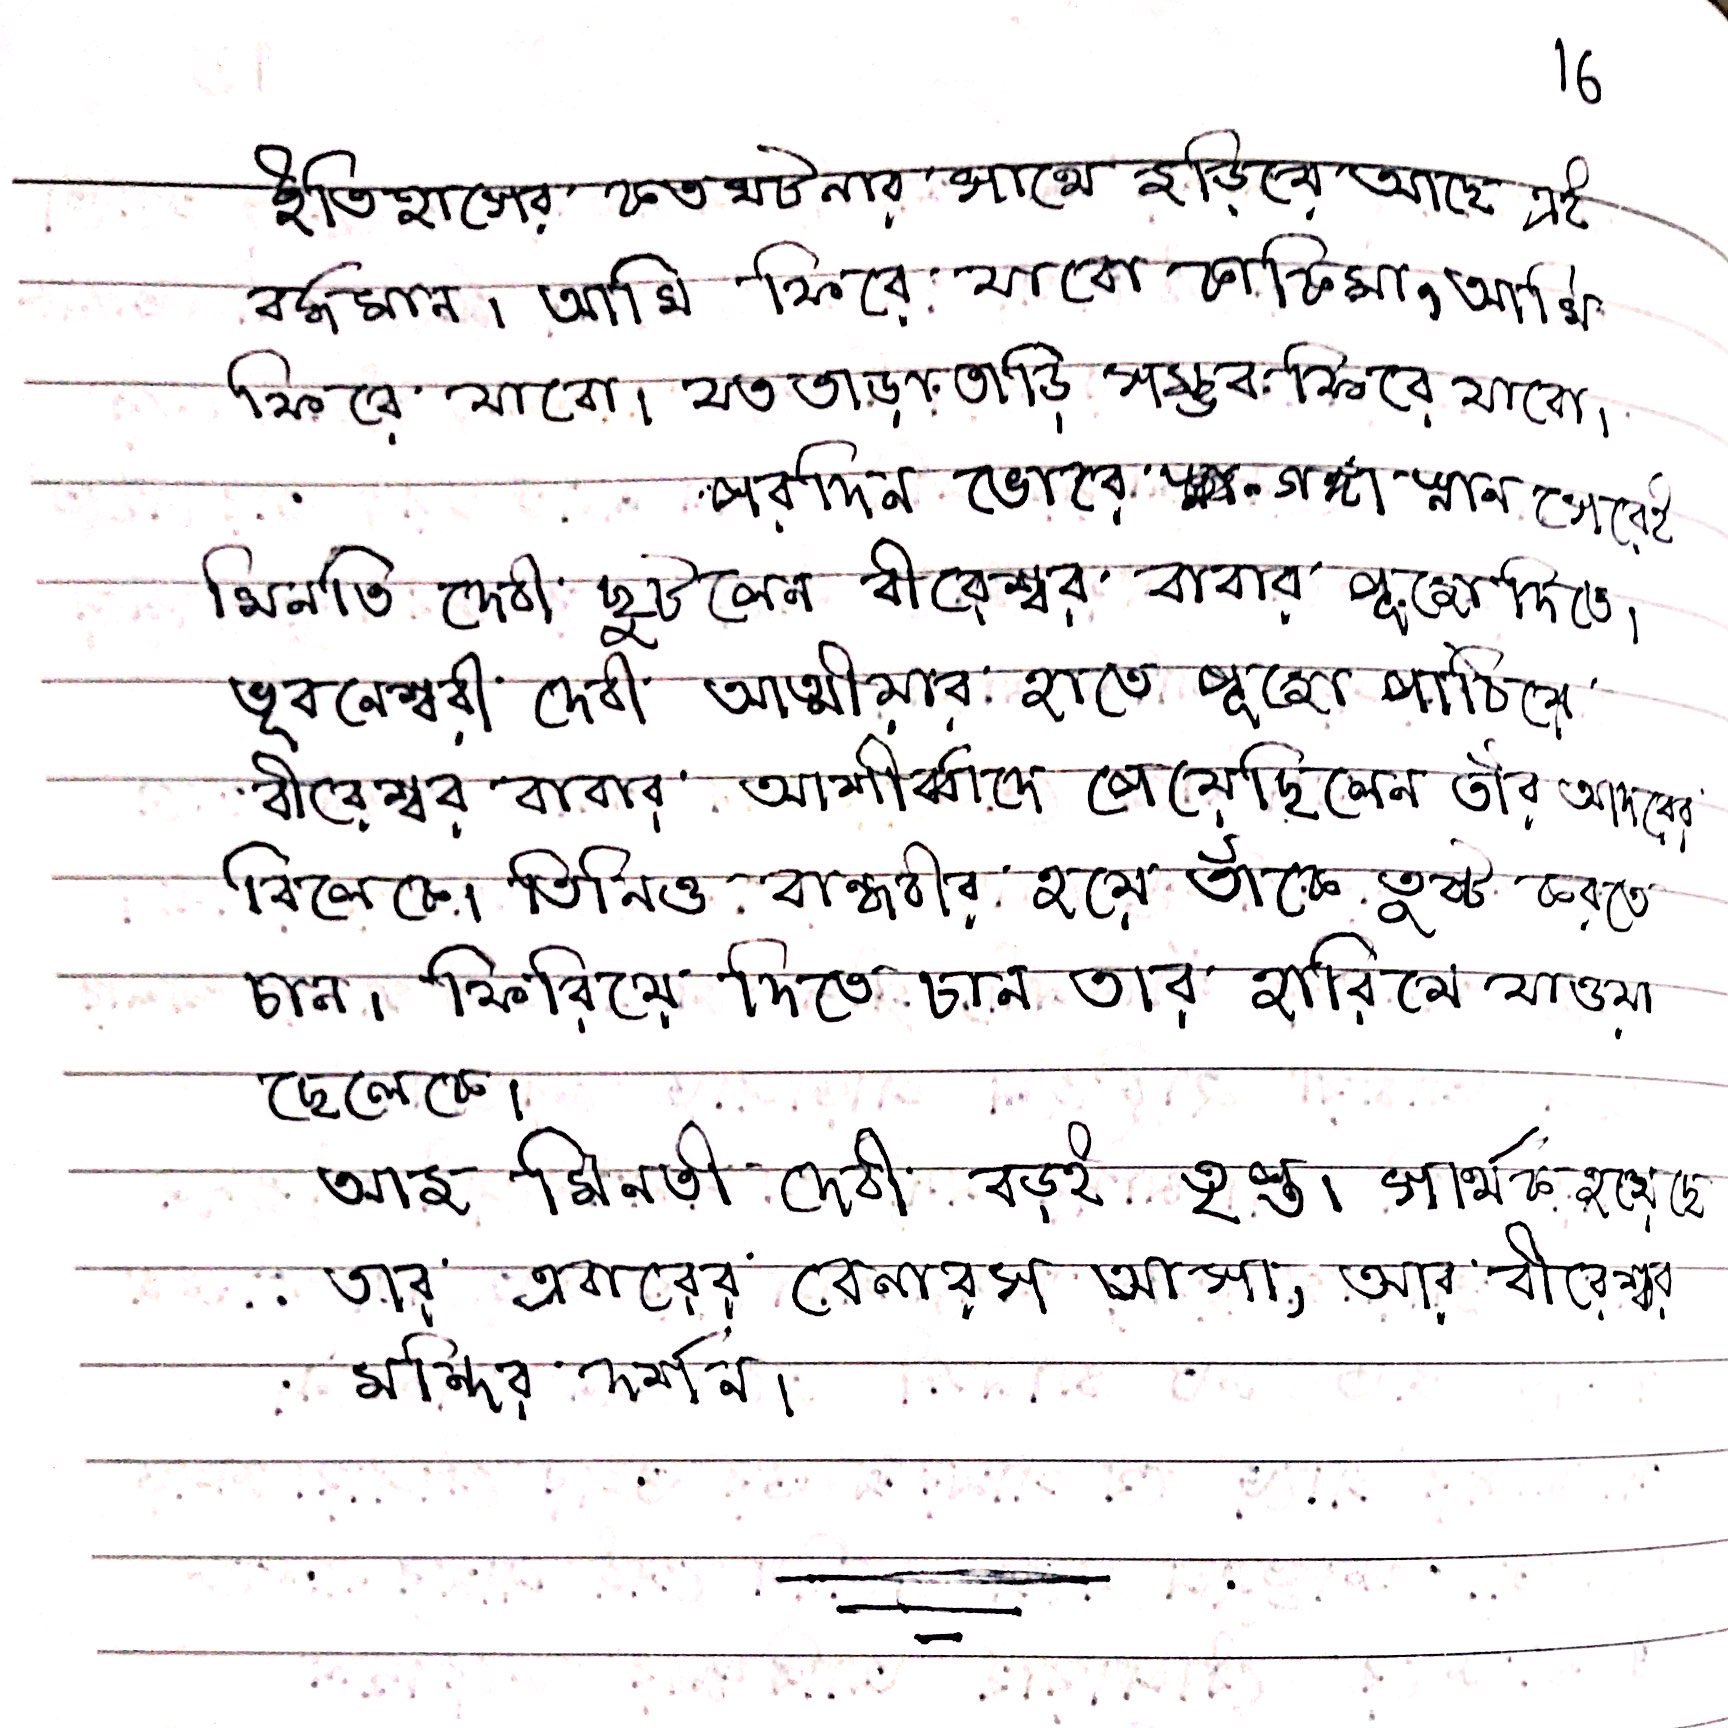 16
ইতিহাসের কত ঘটনার সাথে জড়িয়ে আছে এই
বর্দ্ধমান। আমি ফিরে যাবো কাকিমা, আমি
ফিরে যাবো। যত তাড়াতাড়ি সম্ভব ফিরে যাবো।
পরদিন ভোরে গঙ্গা স্নান সেরেই
মিনতি দেবী ছুটলেন বীরেশ্বর বাবার পূজো দিতে।
ভূবনেশ্বরী দেবী আত্মীয়ার হাতে পূজো পাঠিয়ে
বীরেশ্বর বাবার আশীর্ব্বাদে পেয়েছিলেন তাঁর আদরের
বিলেকে। তিনিও বান্ধবীর হয়ে তাঁকে তুষ্ট করতে
চান। ফিরিয়ে দিতে চান তার হারিয়ে যাওয়া
ছেলেকে।
আজ মিনতী দেবী বড়ই তৃপ্ত। সার্থক হয়েছে
তার এবারের বেনারস আসা, আর বীরেশ্বর
মন্দির দর্শন।